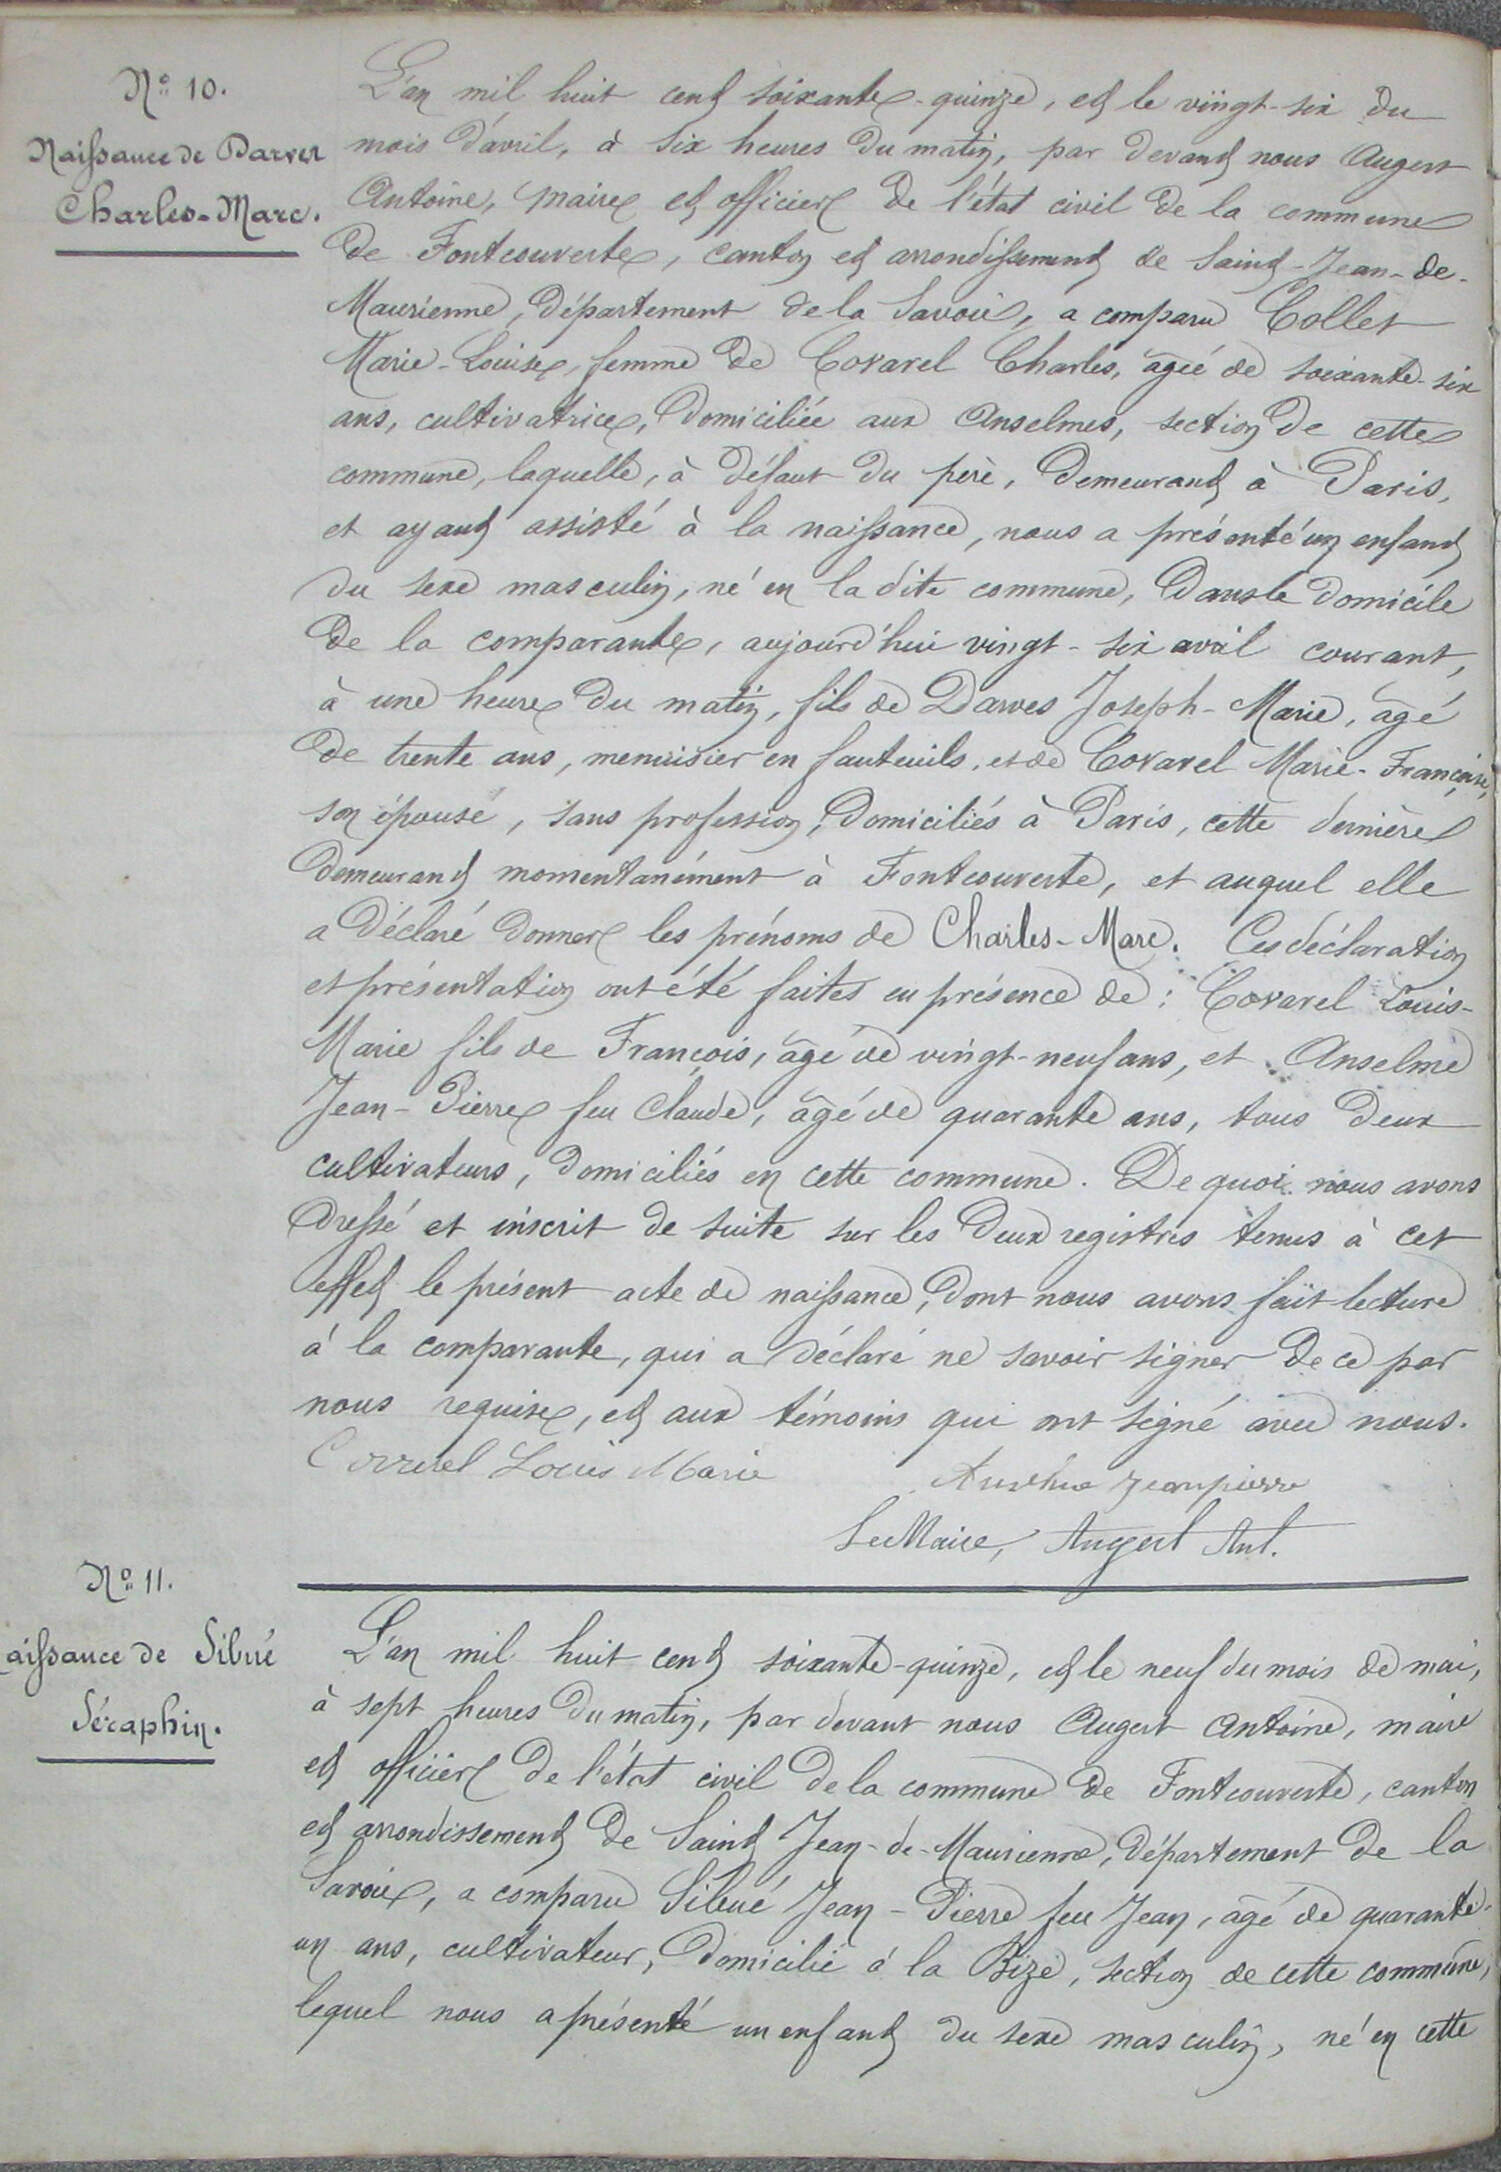 No 10.
Naissance de Darves
Charles-Marc.
L'an mil huit cent soixante-quinze, et le vingt-six du
mois d'avril, à six heures du matin, par devant nous Augert
Antoine, maire et officier de l'état civil de la commune
de Fontcouverte, canton et arrondissement de Saint-Jean-de-
Maurienne, département de la Savoie, a comparu Collet
Marie-Louise, femme de Covarel Charles, âgée de soixante-six
ans, cultivatrice, domiciliée aux Anselmes, section de cette
commune, laquelle, à défaut du père, demeurant à Paris,
et ayant assisté à la naissance, nous a présenté un enfant
du sexe masculin, né en la dite commune, dans le domicile
de la comparante, aujourd'hui vingt-six avril courant,
à une heure du matin, fils de Darves Joseph-Marie, âgé
de trente ans, menuisier en fauteuils, et de Covarel Marie-Françoise,
son épouse, sans profession, domiciliés à Paris, cette dernière
demeurant momentanément à Fontcouverte, et auquel elle
a déclaré donner les prénoms de Charles-Marc. Ces déclaration
et présentation ont été faites en présence de : Covarel Louis-
Marie fils de François, âgé de vingt-neuf ans, et Anselme
Jean-Pierre feu Claude, âgé de quarante ans, tous deux
cultivateurs, domiciliés en cette commune. De quoi nous avons
dressé et inscrit de suite sur les deux registres tenus à cet
effet le présent acte de naissance, dont nous avons fait lecture
à la comparante, qui a déclaré ne savoir signer de ce par
nous requise, et aux témoins qui ont signé avec nous.
Covarel Louis Marie Anselme jeanpierre
Le Maire, Augert Ant.
No 11.
aissance de Sibué
Séraphin.
L'an mil huit cent soixante-quinze, et le neuf du mois de mai,
à sept heures du matin, par devant nous Augert Antoine, maire
et officier de l'état civil de la commune de Fontcouverte, canton
et arrondissement de Saint Jean-de-Maurienne, département de la
Savoie, a comparu Sibué Jean-Pierre feu Jean, âgé de quarante-
un ans, cultivateur, domicilié à la Bize, section de cette commune,
lequel nous a présenté un enfant du sexe masculin, né en cette